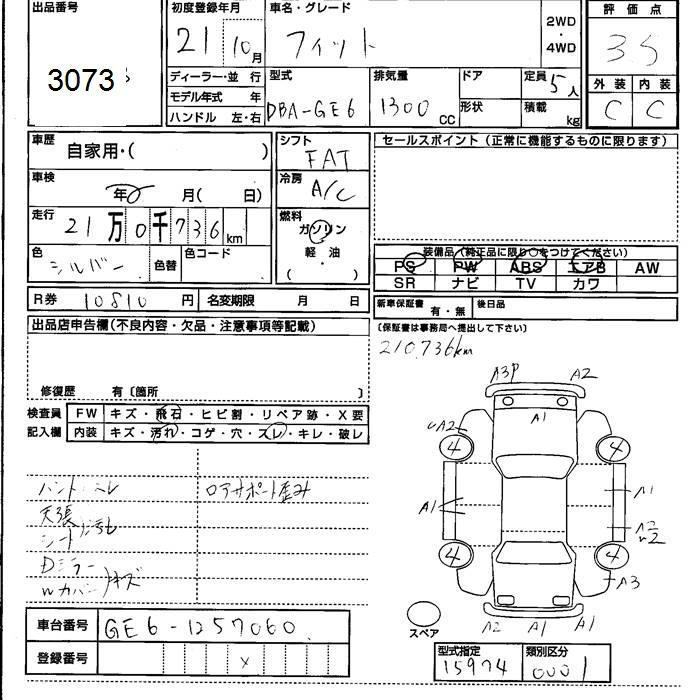 出品番号 初度登録年月 車名・グレード 2WD・4WD 評価点
3073 21 10月 フィット 3.5
ディーラー・並 行 型式 排気量 ドア 定員 5人 外装 内装
モデル年式 年 DBA-GE6 1300 CC 形状 積載 kg C C
ハンドル 左・右
車歴 自家用・( ) シフト FAT セールスポイント (正常に機能するものに限ります)
車検 年 月( 日) 冷房 A/C
走行 21万0千736km 燃料 ガソリン 軽油 ( ・ )
色 シルバー 色替 色コード 装備品 (純正品に限り○をつけてください)
PS PW ABS エアB AW
SR ナビ TV カワ
R券 10810円 名変期限 月 日 新車保証書 有・無 後日品
出品店申告欄(不良内容・欠品・注意事項等記載) (保証書は事務局へ提出して下さい)
210,736km
修復歴 有〔箇所 〕
検査員記入欄 FW キズ・飛石・ヒビ割・リペア跡・X要
内装 キズ・汚れ・コゲ・穴・スレ・キレ・破レ
A3P A2
A1
A2
4 4
A1 A1
A2
W2
4 4
A3
A2 A1 A1
スペア
ハンドルスレ ロアサポート歪み
天張
シート 汚れ
Dミラー
Wカバー キズ
車台番号 GE6-1257060
登録番号 X
型式指定 類別区分
15974 0001